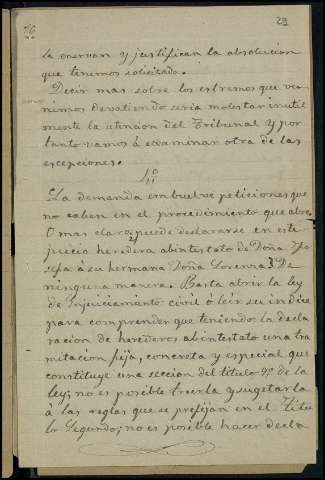 76 29
la enervan y justifican la absolucion
que tenemos solicitada.
Decir mas sobre los estremos que ve-
nimos devatiendo seria molestar inutil
mente la atencion del Tribunal y por
tanto vamos á examinar otra de las
excepciones.
La demanda embuelve peticiones que
no caben en el procedimiento que abre.
O mas claro ¿puede declararse en este
juicio heredera abintestato de Doña Jo
sefa á su hermana Doña Lorenza? De
ninguna manera. Basta abrir la ley
de enjuiciamiento civil ó leer su indice
para comprender que teniendo la decla
racion de herederos abintestato una tra
mitacion fija, concreta y especial que
constituye una seccion del titulo 9º de la
ley; no es posible traerla y sugetarla
á las reglas que se prefijan en el Titu
lo Segundo; no es posible hacer decla